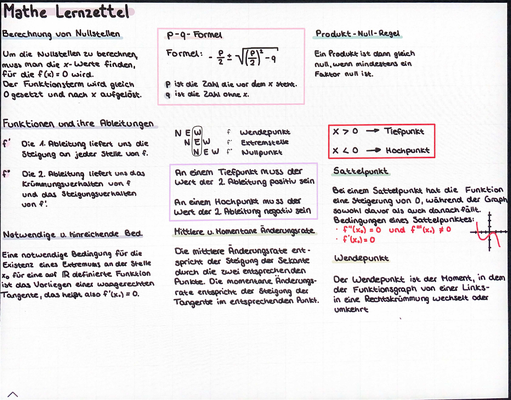 Mathe Lernzettel
Berechnung von Nullstellen
Um die Nullstellen zu berechnen,
muss man die x-Werte finden,
für die f(x) = 0 wird.
Der Funktionsterm wird gleich
0 gesetzt und nach x aufgelöst.
p-q-Formel
Formel: - p/2 ± √((p/2)² - q)
p ist die Zahl die vor dem x steht.
q ist die Zahl ohne x.
Produkt-Null-Regel
Ein Produkt ist dann gleich
null, wenn mindestens ein
Faktor null ist.
Funktionen und ihre Ableitungen
f' Die 1. Ableitung liefert uns die
Steigung an jeder Stelle von f.
f'' Die 2. Ableitung liefert uns das
Krümmungsverhalten von f
und das Steigungsverhalten
von f'.
N E W f Wendepunkt
N E W f' Extremstelle
N E W f'' Nullpunkt
An einem Tiefpunkt muss der
Wert der 2 Ableitung positiv sein
An einem Hochpunkt muss der
Wert der 2 Ableitung negativ sein
x > 0 → Tiefpunkt
x < 0 → Hochpunkt
Sattelpunkt
Bei einem Sattelpunkt hat die Funktion
eine Steigerung von 0, während der Graph
sowohl davor als auch danach fällt.
Bedingungen eines Sattelpunktes:
· f''(x₀) = 0 und f'''(x₀) ≠ 0
· f'(x₀) = 0
Notwendige u. hinreichende Bed.
Eine notwendige Bedingung für die
Existenz eines Extremums an der Stelle
x₀ für eine auf ℝ definierte Funktion
ist das Vorliegen einer waagerechten
Tangente, das heißt also f'(x₀) = 0.
Mittlere u. Momentane Änderungsrate
Die mittlere Änderungsrate ent-
spricht der Steigung der Sekante
durch die zwei entsprechenden
Punkte. Die momentane Änderungs-
rate entspricht der Steigung der
Tangente im entsprechenden Punkt.
Wendepunkt
Der Wendepunkt ist der Moment, in dem
der Funktionsgraph von einer Links-
in eine Rechtskrümmung wechselt oder
umkehrt